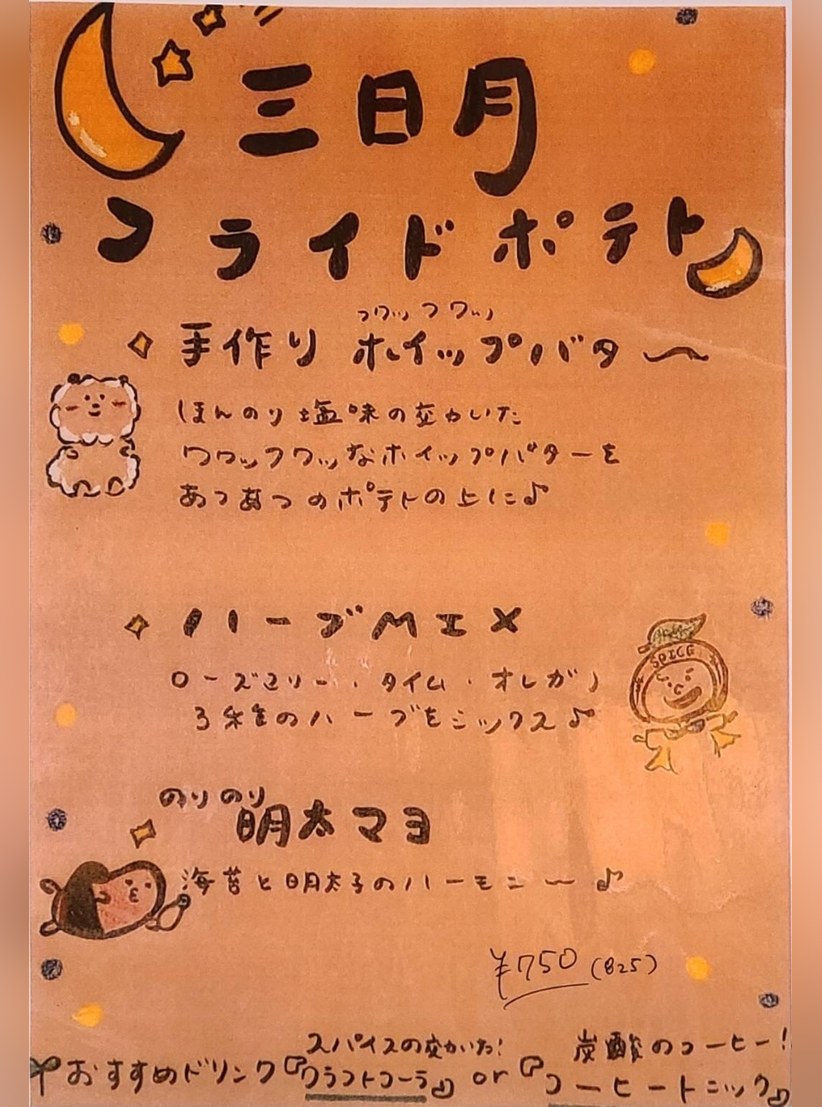 三日月
フライドポテト
フワッフワッ
手作り ホイップバター
ほんのり塩味の交かいた
フワッフワッなホイップバターを
あつあつのポテトの上に♪
ハーブMIX
ローズマリー・タイム・オレガノ
3種のハーブをミックス♪
SPICE
のりのり
明太マヨ
海苔と明太子のハーモニー♪
¥750(825)
スパイスの交かいた! 炭酸のコーヒー!
おすすめドリンク『クラフトコーラ』or『コーヒートニック』